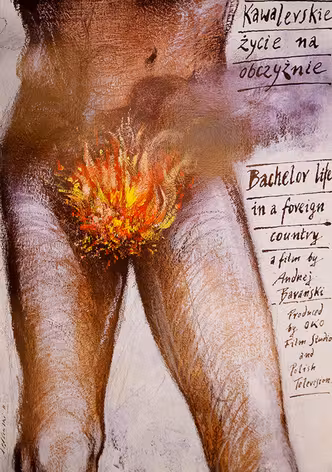 Kawalerskie
życie na
obczyźnie
Bachelor life
in a foreign
country
a film by
Andrzej
Barański
Produced
by OKO
Film Studio
and
Polish
Television